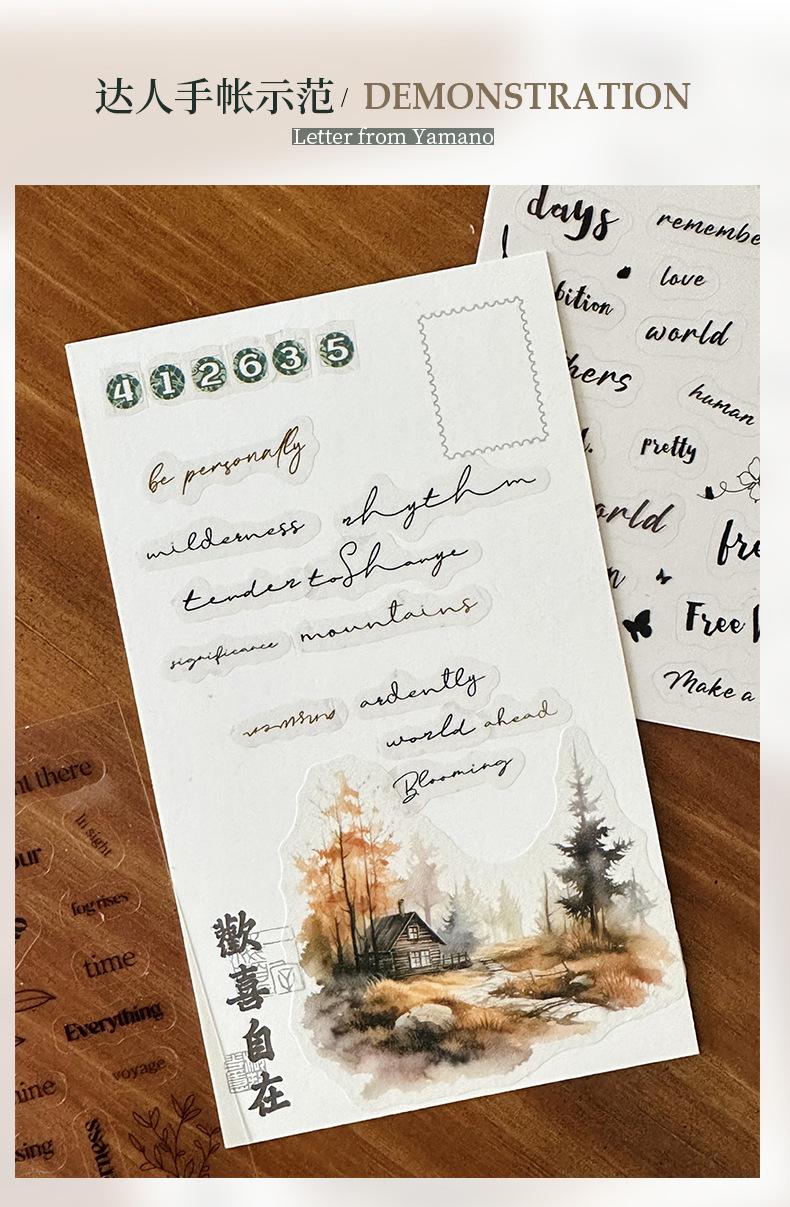 达人手帐示范/ DEMONSTRATION
Letter from Yamano
412635
be personally
wilderness rhythm
tender to Change
significance mountains
answer ardently
world ahead
Blooming
歡喜自在
days
remembe
love
bition
world
hers
human
Pretty
orld
fre
Free
Make a
nt there
In sight
our
fog rises
time
Everything
voyage
nine
sing